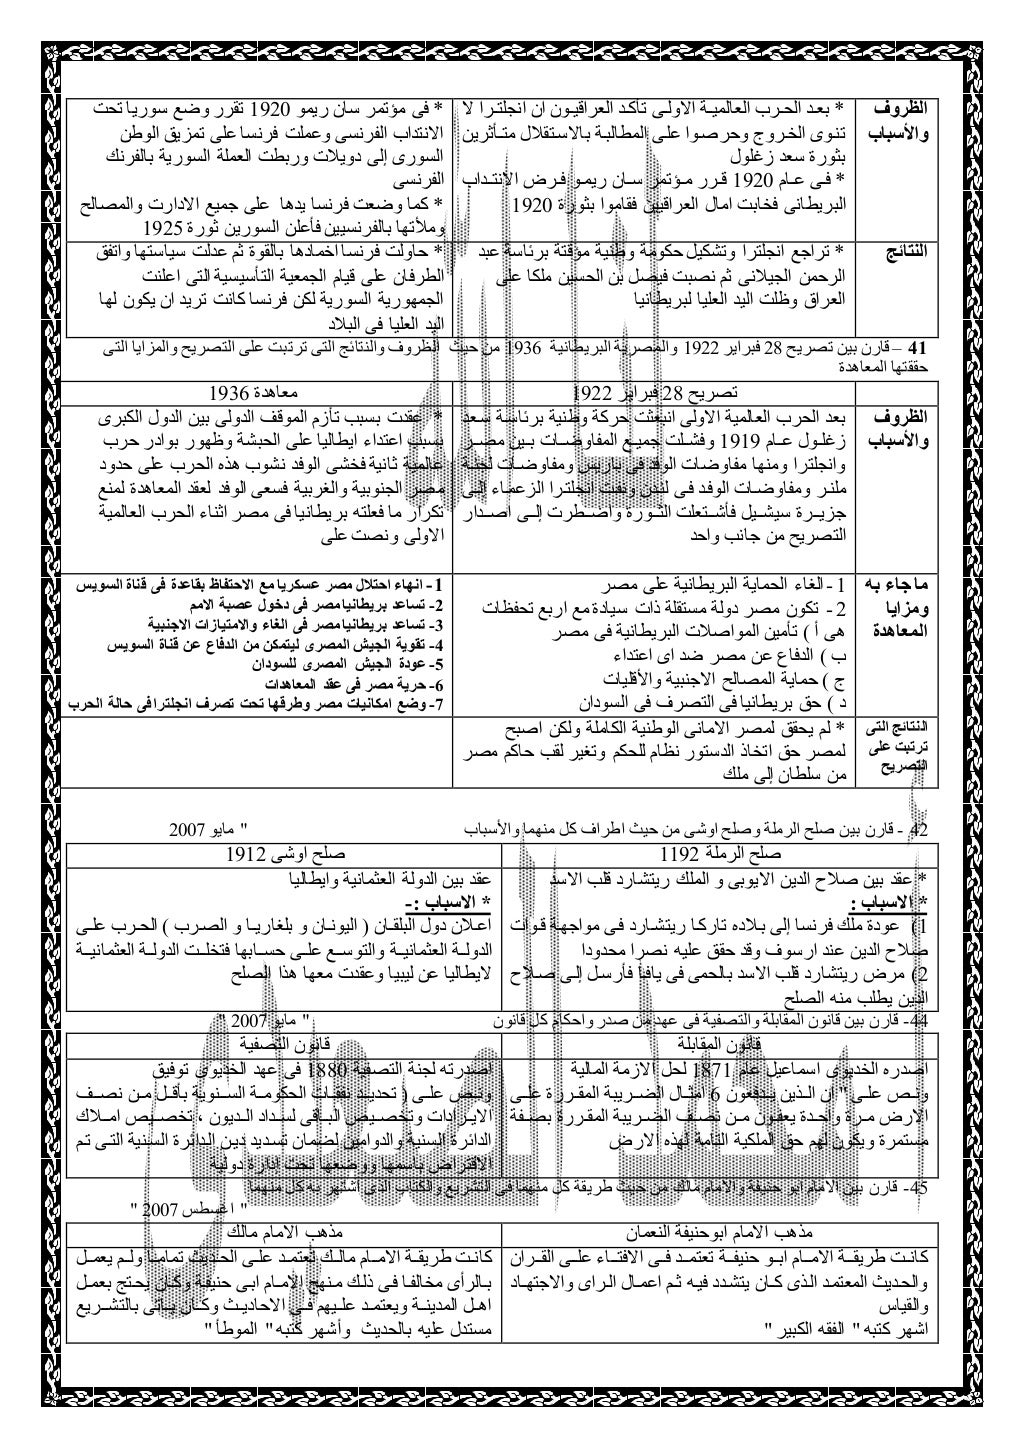 الظروف والأسباب
* بعد الحرب العالمية الاولى تأكد العراقيون ان انجلترا لا
تنوى الخروج وحرصوا على المطالبة بالاستقلال متأثرين
بثورة سعد زغلول
* فى عام 1920 قرر مؤتمر سان ريمو فرض الانتداب
البريطانى فخابت امال العراقيين فقاموا بثورة 1920
* فى مؤتمر سان ريمو 1920 تقرر وضع سوريا تحت
الانتداب الفرنسى وعملت فرنسا على تمزيق الوطن
السورى إلى دويلات وربطت العملة السورية بالفرنك
الفرنسى
* كما وضعت فرنسا يدها على جميع الادارت والمصالح
وملأتها بالفرنسيين فأعلن السورين ثورة 1925
النتائج
* تراجع انجلترا وتشكيل حكومة وطنية مؤقتة برئاسة عبد
الرحمن الجيلانى ثم نصبت فيصل بن الحسين ملكا على
العراق وظلت اليد العليا لبريطانيا
* حاولت فرنسا اخمادها بالقوة ثم عدلت سياستها واتفق
الطرفان على قيام الجمعية التأسيسية التى اعلنت
الجمهورية السورية لكن فرنسا كانت تريد ان يكون لها
اليد العليا فى البلاد
41 – قارن بين تصريح 28 فبراير 1922 والمصرية البريطانية 1936 من حيث الظروف والنتائج التى ترتبت على التصريح والمزايا التى
حققتها المعاهدة
تصريح 28 فبراير 1922
معاهدة 1936
الظروف والأسباب
بعد الحرب العالمية الاولى انبعثت حركة وطنية برئاسة سعد
زغلول عام 1919 وفشلت جميع المفاوضات بين مصر
وانجلترا ومنها مفاوضات الوفد فى باريس ومفاوضات لجنة
ملنر ومفاوضات الوفد فى لندن ونفت انجلترا الزعماء الى
جزيرة سيشيل فأشتعلت الثورة واضطرت إلى اصدار
التصريح من جانب واحد
* عقدت بسبب تأزم الموقف الدولى بين الدول الكبرى
بسبب اعتداء ايطاليا على الحبشة وظهور بوادر حرب
عالمية ثانية فخشى الوفد نشوب هذه الحرب على حدود
مصر الجنوبية والغربية فسعى الوفد لعقد المعاهدة لمنع
تكرار ما فعلته بريطانيا فى مصر اثناء الحرب العالمية
الاولى ونصت على
ماجاء به ومزايا المعاهدة
1 - الغاء الحماية البريطانية على مصر
2 - تكون مصر دولة مستقلة ذات سيادة مع اربع تحفظات
هى أ ) تأمين المواصلات البريطانية فى مصر
ب ) الدفاع عن مصر ضد اى اعتداء
ج ) حماية المصالح الاجنبية والأقليات
د ) حق بريطانيا فى التصرف فى السودان
1 - انهاء احتلال مصر عسكريا مع الاحتفاظ بقاعدة فى قناة السويس
2- تساعد بريطانيا مصر فى دخول عصبة الامم
3- تساعد بريطانيا مصر فى الغاء والامتيازات الاجنبية
4- تقوية الجيش المصرى ليتمكن من الدفاع عن قناة السويس
5- عودة الجيش المصرى للسودان
6- حرية مصر فى عقد المعاهدات
7- وضع امكانيات مصر وطرقها تحت تصرف انجلترا فى حالة الحرب
النتائج التى ترتبت على التصريح
* لم يحقق لمصر الامانى الوطنية الكاملة ولكن اصبح
لمصر حق اتخاذ الدستور نظام للحكم وتغير لقب حاكم مصر
من سلطان إلى ملك
42 - قارن بين صلح الرملة وصلح اوشى من حيث اطراف كل منهما والأسباب " مايو 2007
صلح الرملة 1192
صلح اوشى 1912
* عقد بين صلاح الدين الايوبى و الملك ريتشارد قلب الاسد
* الاسباب :
1) عودة ملك فرنسا إلى بلاده تاركا ريتشارد فى مواجهة قوات
صلاح الدين عند ارسوف وقد حقق عليه نصرا محدودا
2) مرض ريتشارد قلب الاسد بالحمى فى يافا فأرسل إلى صلاح
الدين يطلب منه الصلح
عقد بين الدولة العثمانية وايطاليا
* الاسباب :-
اعلان دول البلقان ( اليونان و بلغاريا و الصرب ) الحرب على
الدولة العثمانية والتوسع على حسابها فتخلت الدولة العثمانية
لايطاليا عن ليبيا وعقدت معها هذا الصلح
44- قارن بين قانون المقابلة والتصفية فى عهد من صدر واحكام كل قانون " مايو 2007 "
قانون المقابلة
قانون التصفية
اصدره الخديوى اسماعيل عام 1871 لحل الازمة المالية
ونص على " ان الذين يدفعون 6 امثال الضريبة المقررة على
الارض مرة واحدة يعفون من نصف الضريبة المقررة بصفة
مستمرة ويكون لهم حق الملكية التامة لهذه الارض
اصدرته لجنة التصفية 1880 فى عهد الخديوى توفيق
ونص على ( تحديد نفقات الحكومة السنوية بأقل من نصف
الايرادات وتخصيص الباقى لسداد الديون ، تخصيص املاك
الدائرة السنية والدوامين لضمان تسديد دين الدائرة السنية التى تم
الاقتراض باسمها ووضعها تحت إدارة دولية
45- قارن بين الامام ابو حنيفة والامام مالك من حيث طريقة كل منهما فى التشريع والكتاب الذى اشتهر به كل منهما
" اغسطس 2007 "
مذهب الامام ابوحنيفة النعمان
مذهب الامام مالك
كانت طريقة الامام ابو حنيفة تعتمد فى الافتاء على القران
والحديث المعتمد الذى كان يتشدد فيه ثم اعمال الراى والاجتهاد
والقياس
اشهر كتبه " الفقه الكبير "
كانت طريقة الامام مالك تعتمد على الحديث تماما ولم يعمل
بالرأى مخالفا فى ذلك منهج الأمام ابى حنيفة وكان يحتج بعمل
اهل المدينة ويعتمد عليهم فى الاحاديث وكان يأتى بالتشريع
مستدل عليه بالحديث وأشهر كتبه " الموطأ "